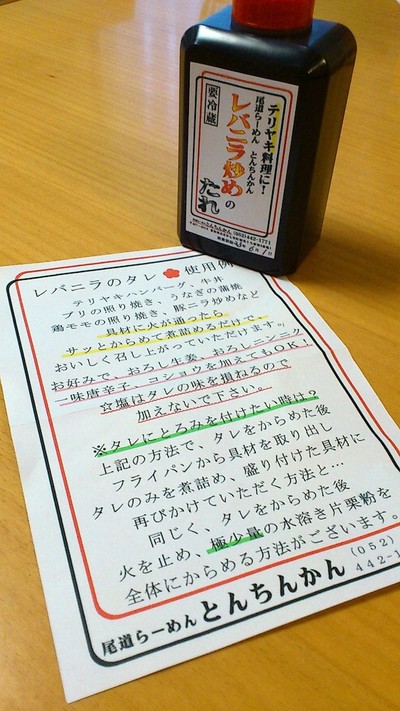 テリヤキ料理に!
尾道らーめん とんちんかん
レバニラ炒めのたれ
要冷蔵
とんちんかん (052)442-1771
レバニラのタレ 使用例
テリヤキハンバーグ、牛丼
ブリの照り焼き、うなぎの蒲焼
鶏モモの照り焼き、豚ニラ炒めなど
具材に火が通ったら
サッとからめて煮詰めるだけで、
おいしく召し上がっていただけますッ
お好みで、おろし生姜、おろしニンニク
一味唐辛子、コショウを加えてもOK!
☆塩はタレの味を損ねるので
加えないで下さい。
※タレにとろみを付けたい時は?
上記の方法で、タレをからめた後
フライパンから具材を取り出し
タレのみを煮詰め、盛り付けた具材に
再びかけていただく方法と…
同じく、タレをからめた後
火を止め、極少量の水溶き片栗粉を
全体にからめる方法がございます。
尾道らーめん とんちんかん (052)
442-1